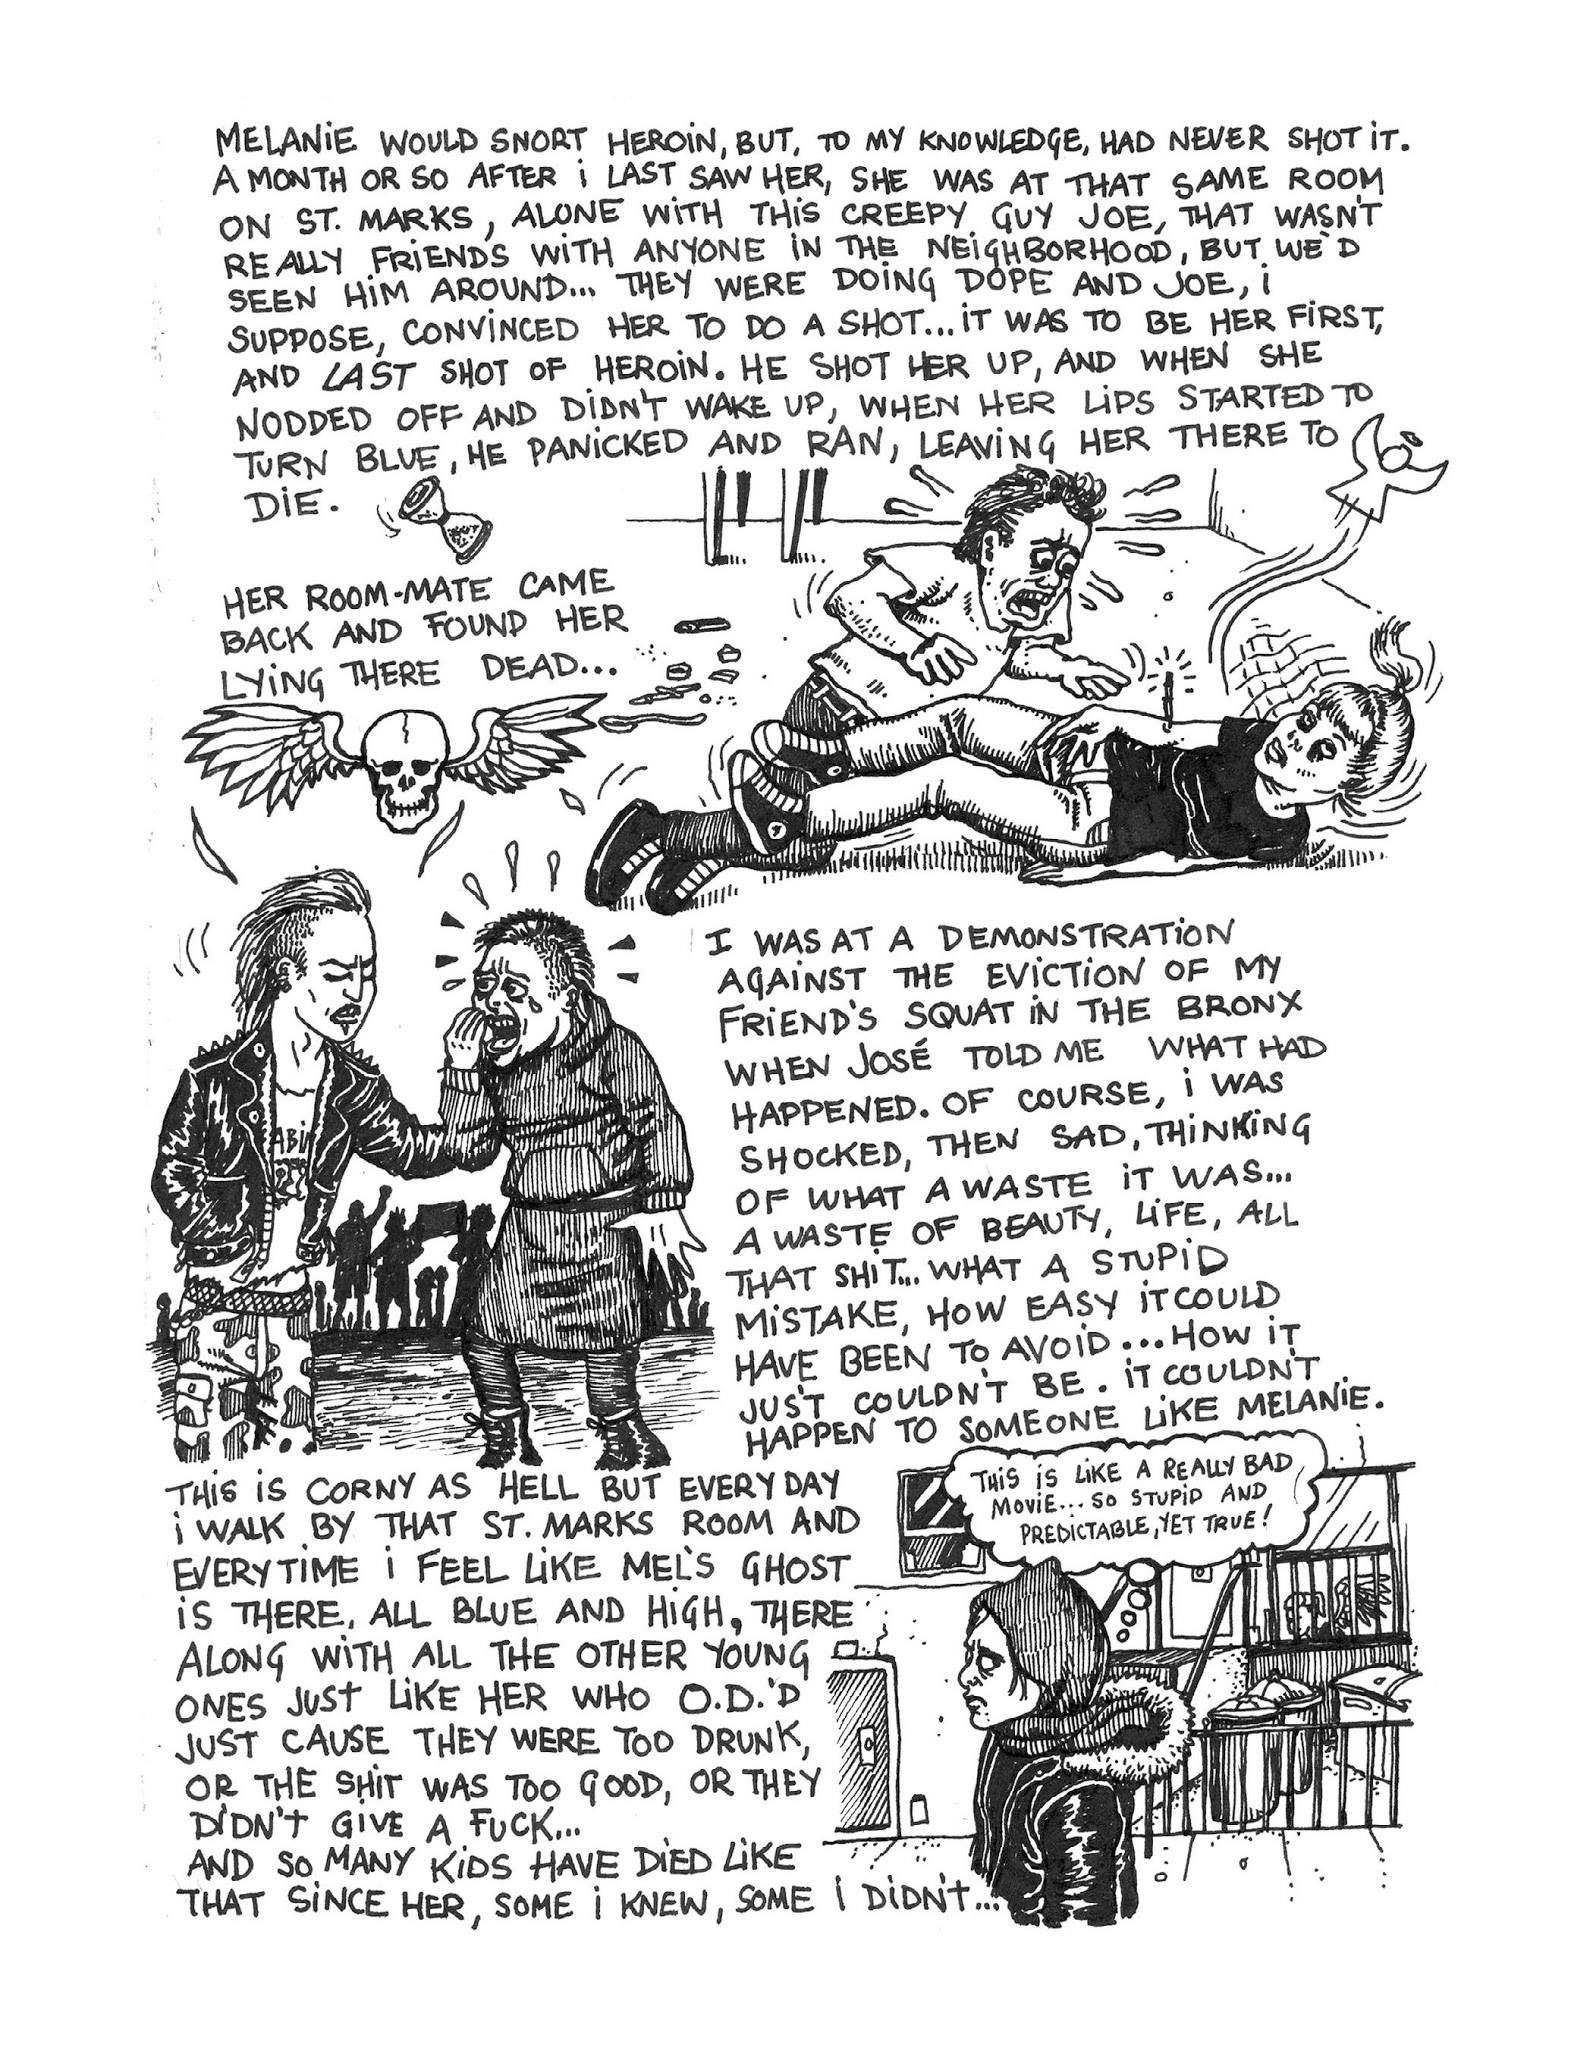 MELANiE WOULD SNORT HEROiN, BUT, TO MY KNOWLEDGE, HAD NEVER SHOT iT.
A MONTH OR SO AFTER i LAST SAW HER, SHE WAS AT THAT SAME ROOM
ON ST. MARKS, ALONE WiTH THiS CREEPY GUY JOE, THAT WASN'T
REALLY FRiENDS WiTH ANYONE IN THE NEiGHBORHOOD, BUT WE'D
SEEN HiM AROUND... THEY WERE DOiNG DOPE AND JOE, i
SUPPOSE, CONViNCED HER TO DO A SHOT... iT WAS TO BE HER FiRST,
AND LAST SHOT OF HEROiN. HE SHOT HER UP, AND WHEN SHE
NODDED OFF AND DiDN'T WAKE UP, WHEN HER LiPS STARTED TO
TURN BLUE, HE PANiCKED AND RAN, LEAViNG HER THERE TO
DiE.
HER ROOM-MATE CAME
BACK AND FOUND HER
LYiNG THERE DEAD...
ABi
I WAS AT A DEMONSTRATiON
AGAiNST THE EViCTiON OF MY
FRiEND'S SQUAT iN THE BRONX
WHEN JOSÉ TOLD ME WHAT HAD
HAPPENED. OF COURSE, i WAS
SHOCKED, THEN SAD, THiNKiNG
OF WHAT A WASTE iT WAS...
A WASTE OF BEAUTY, LiFE, ALL
THAT SHiT... WHAT A STUPiD
MiSTAKE, HOW EASY iT COULD
HAVE BEEN TO AVOiD... HOW iT
JUST COULDN'T BE. iT COULDN'T
HAPPEN TO SOMEONE LiKE MELANiE.
THiS iS LiKE A REALLY BAD
MOViE... SO STUPiD AND
PREDiCTABLE, YET TRUE!
THiS iS CORNY AS HELL BUT EVERYDAY
i WALK BY THAT ST. MARKS ROOM AND
EVERYTiME i FEEL LiKE MEL'S GHOST
iS THERE, ALL BLUE AND HiGH, THERE
ALONG WiTH ALL THE OTHER YOUNG
ONES JUST LiKE HER WHO O.D.'D
JUST CAUSE THEY WERE TOO DRUNK,
OR THE SHiT WAS TOO GOOD, OR THEY
DiDN'T GiVE A FUCK...
AND SO MANY KiDS HAVE DiED LiKE
THAT SiNCE HER, SOME i KNEW, SOME i DiDN'T...